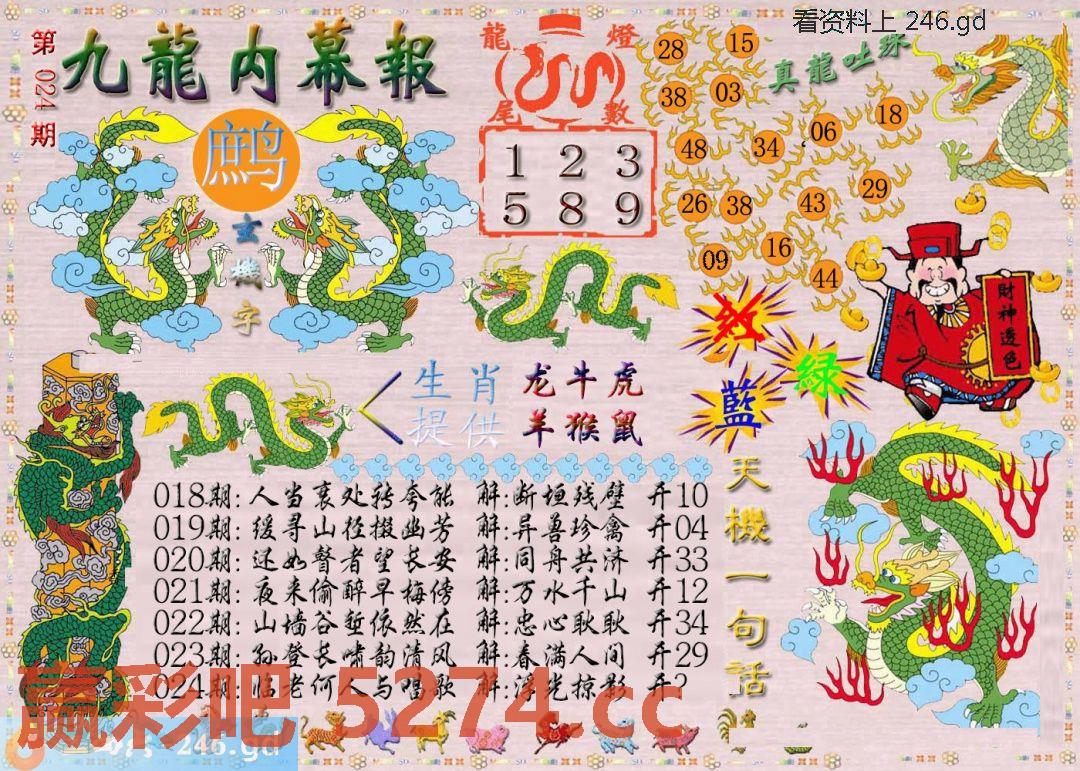 看资料上 246.gd
第024期
九龍内幕報
鹧
玄機字
龍燈
尾數
1 2 3
5 8 9
真龍吐珠
28 15
38 03
48 34 06 18
26 38 43 29
09 16 44
紅
綠
藍
財神透色
生肖 龙牛虎
提供 羊猴鼠
天機一句話
018期:人当衰处转夸能 解:断垣残壁 开10
019期:缓寻山径掇幽芳 解:异兽珍禽 开04
020期:还如瞽者望长安 解:同舟共济 开33
021期:夜来偷醉早梅傍 解:万水千山 开12
022期:山墙谷堑依然在 解:忠心耿耿 开34
023期:孙登长啸韵清风 解:春满人间 开29
024期:临老何人与唱歌 解:浮光掠影 开?
赢彩吧 5274.cc
246.gd